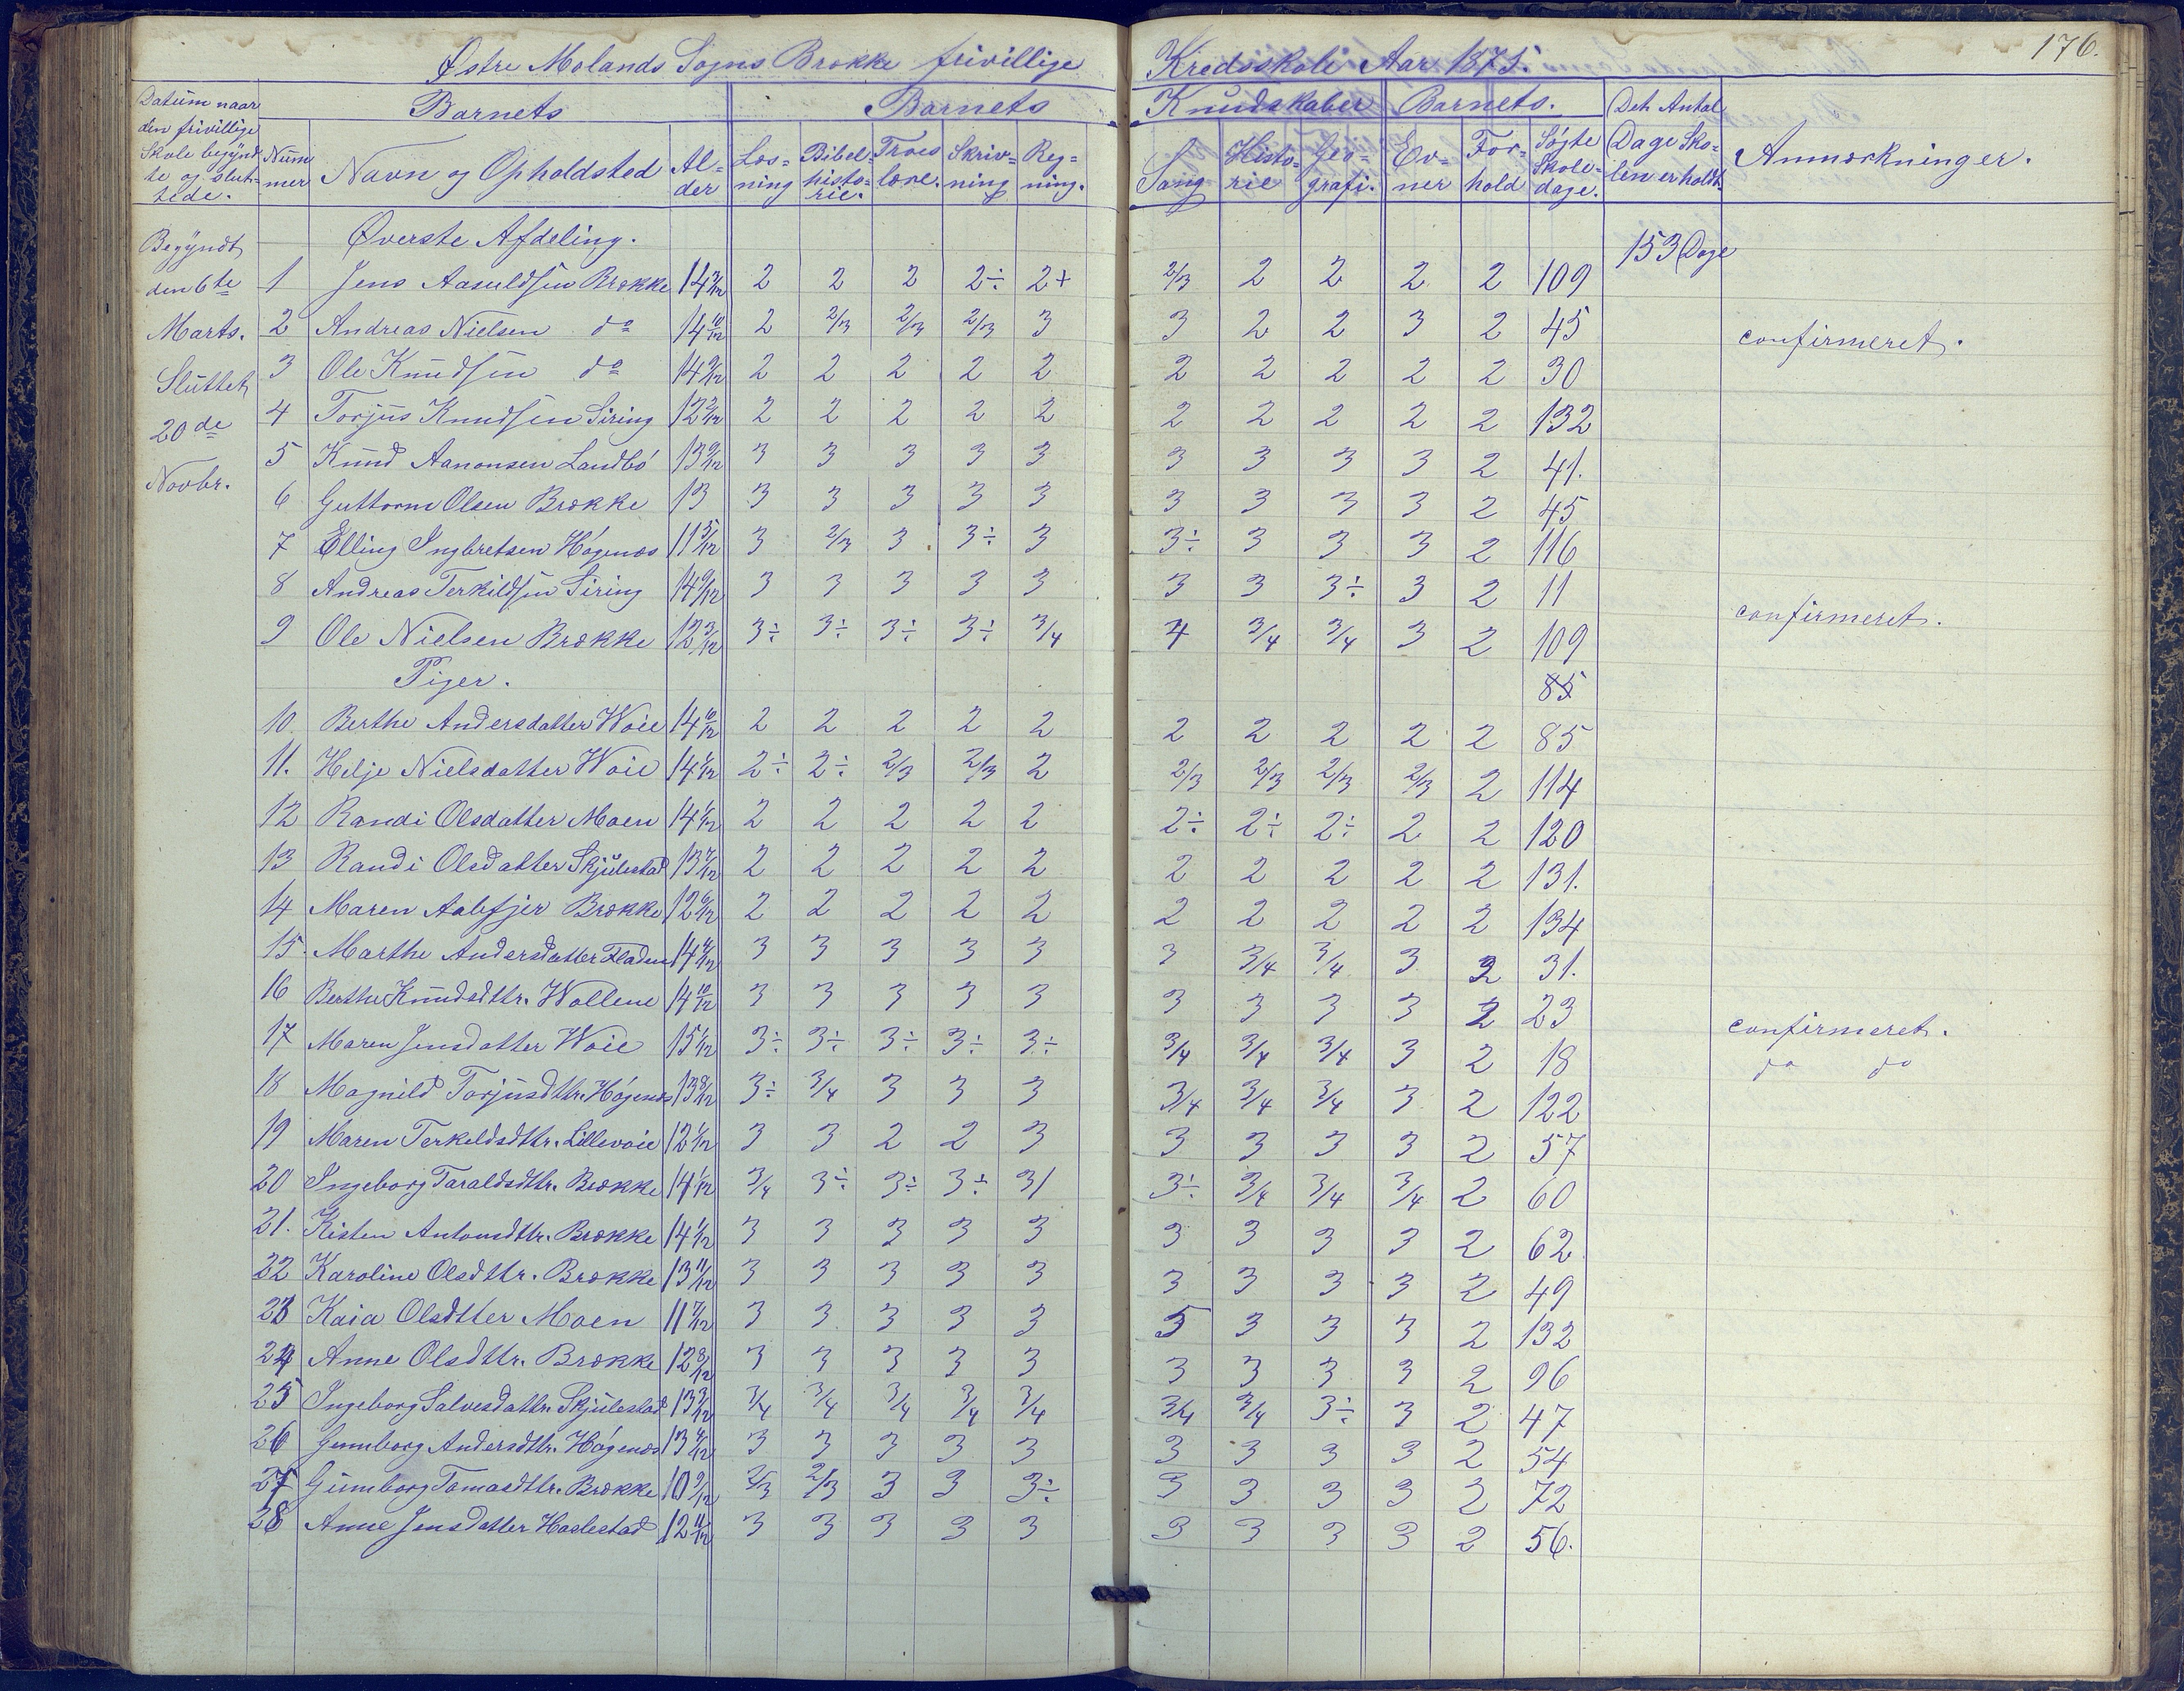 176.
Østre Molands Sogns Brække frivillige Kredsskole Aar 1875.
Datum naar den frivillige Skole begynd-te og slut-tede.
Barnets Barnets Kundskaber Barnets. Det Antal Dage Sko-len er holdt. Anmærkninger.
Num mer Navn og Opholdsted Al-der Læs-ning Bibel-histo-rie. Troes lære. Skriv-ning Reg-ning. Sang Histo-rie Geo-grafi. Ev-ner For-hold Søgte Skole-dage.
Begyndt Øverste Afdeling. 153 Dage
den 6te 1 Jens Aasuldsen Brække 14 2 2 2 2÷ 2+ 2/3 2 2 2 2 109
Marts. 2 Andreas Nielsen do 14 10/12 2 2/3 2/3 2/3 3 3 2 2 3 2 45 confirmeret.
Sluttet 3 Ole Knudsen do 14 9/12 2 2 2 2 2 2 2 2 2 2 30
20de 4 Torjus Knudsen Siring 12 2/12 2 2 2 2 2 2 2 2 2 2 132
Novbr. 5 Knud Aanonsen Landbø 13 9/12 3 3 3 3 3 3 3 3 3 2 41.
6 Guttorm Olsen Brække 13 3 3 3 3 3 3 3 3 3 2 45
7 Elling Ingbretsen Høgenæs 11 5/12 3 2/3 3 3÷ 3 3÷ 3 3 3 2 116
8 Andreas Terkildsen Siring 14 9/12 3 3 3 3 3 3 3 3÷ 3 2 11 confirmeret.
9 Ole Nielsen Brække 12 3/12 3÷ 3÷ 3÷ 3÷ 3/4 4 3/4 3/4 3 2 109
Piger. 85
10. Berthe Andersdatter Woie 14 10/12 2 2 2 2 2 2 2 2 2 2 85
11. Helje Nielsdatter Woie 14 1/12 2÷ 2÷ 2/3 2/3 2 2/3 2/3 2/3 2/3 2 114
12 Randi Olsdatter Moen 14 1/12 2 2 2 2 2 2÷ 2÷ 2÷ 2 2 120
13 Randi Olsdatter Skjulestad 13 7/12 2 2 2 2 2 2 2 2 2 2 131.
14 Maren Aalefjer Brække 12 6/12 2 2 2 2 2 2 2 2 2 2 134
15. Marthe Andersdatter Fladen 14 3 3 3 3 3 3 3/4 3/4 3 2 31.
16 Berthe Knudsdttr. Wollene 14 10/12 3 3 3 3 3 3 3 3 3 2 23 confirmeret.
17 Maren Jensdatter Woie 15 1/12 3÷ 3÷ 3÷ 3÷ 3÷ 3/4 3/4 3/4 3 2 18 do do
18 Magnild Torjusdttr. Høgenæs 13 8/12 3÷ 3/4 3 3 3 3/4 3/4 3/4 3 2 122
19 Maren Terkeldsdttr. Lillevoie 12 1/12 3 3 2 2 3 3 3 3 3 2 57
20 Ingeborg Taraldsdttr. Brække 14 1/12 3/4 3÷ 3÷ 3÷ 3/ 3÷ 3/4 3/4 3/4 2 60
21. Kisten Antonsdttr. Brække 14 1/12 3 3 3 3 3 3 3 3 3 2 62
22 Karoline Olsdttr. Brække 13 11/12 3 3 3 3 3 3 3 3 3 2 49
23 Kaia Olsdtter Moen 11 7/12 3 3 3 3 3 5 3 3 3 2 132
24 Anne Olsdttr. Brække 12 8/12 3 3 3 3 3 3 3 3 3 2 96
25 Ingeborg Salvesdattr. Skjulestad 13 3/12 3/4 3/4 3/4 3/4 3/4 3/4 3/4 3÷ 3 2 47
26 Gunnborg Andersdttr. Høgenæs 13 3 3 3 3 3 3 3 3 3 2 54
27 Gunnborg Tomasdttr. Brække 10 9/12 2/3 2/3 3 3 3÷ 3 3 3 3 2 72
28 Anne Jensdatter Haslestad 12 11/12 3 3 3 3 3 3 3 3 3 2 56.